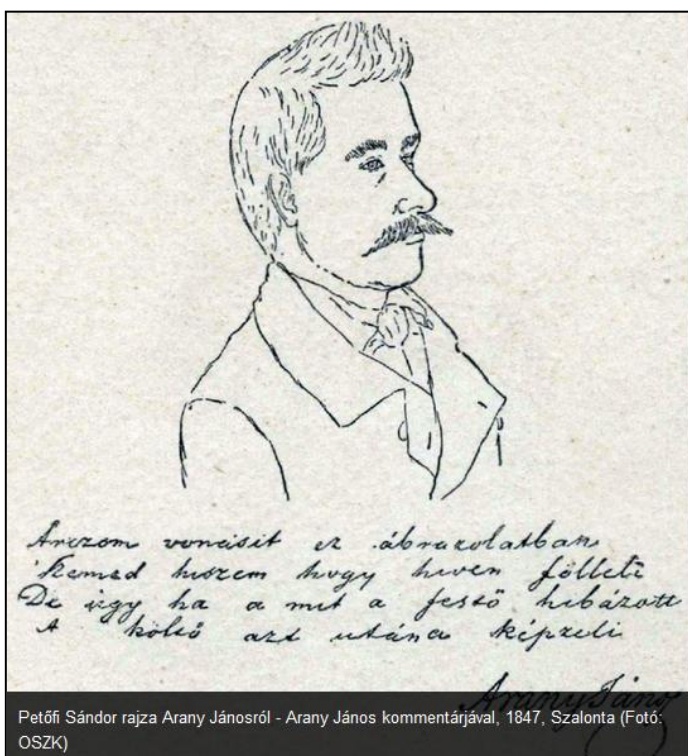 Arczom vonásit ez ábrazolatban
Szemed hiszem hogy hiven föllelé
De úgy ha a mit a festő hibázott
A költő azt utána képzelé
Arany János
Petőfi Sándor rajza Arany Jánosról - Arany János kommentárjával, 1847, Szalonta (Fotó:
OSZK)